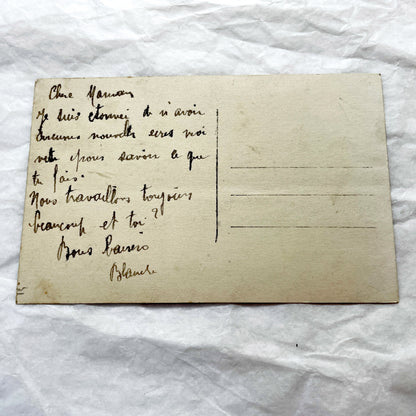 Chere Maman
Je suis etonnée de n'avoir
aucunes nouvelle ecres moi
vite pous savoir ce que
tu fais.
Nous travaillons toujours
beaucoup et toi ?
Bons Baisers
Blanche